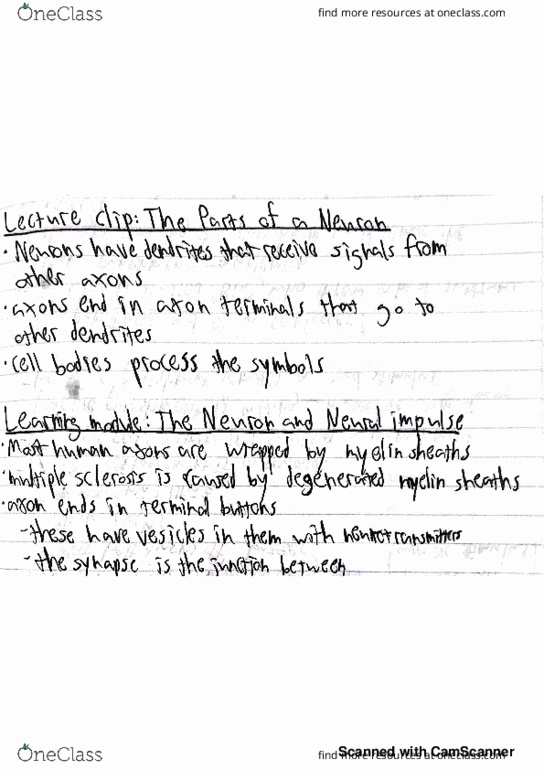 OneClass
find more resources at oneclass.com
Lecture clip: The Parts of a Neuron
· Neurons have dendrites that receive signals from
other axons
· axons end in axon terminals that go to
other dendrites
· cell bodies process the symbols
Learning module: The Neuron and Neural impulse
· Most human axons are wrapped by myelin sheaths
· multiple sclerosis is caused by degenerated myelin sheaths
· axon ends in terminal buttons
- these have vesicles in them with neurotransmitters
- the synapse is the junction between
OneClass
find more resources at oneclass.com
Scanned with CamScanner